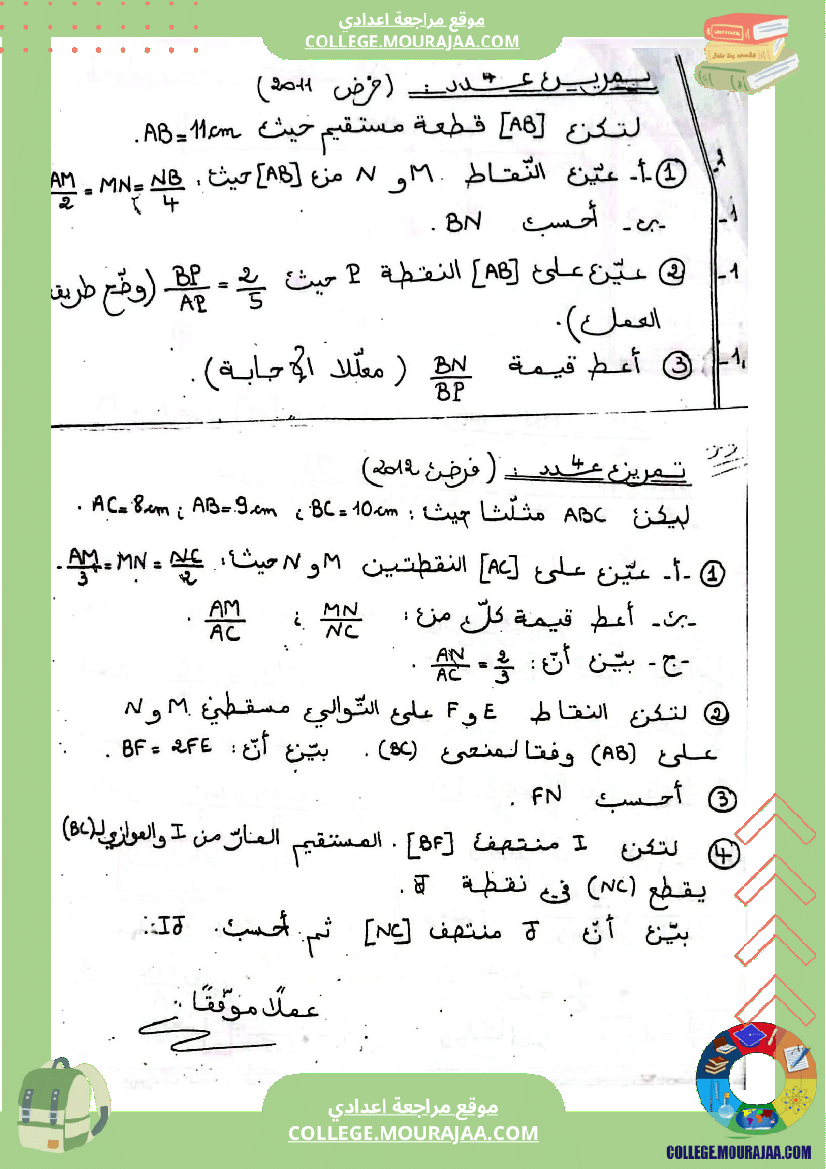 موقع مراجعة اعدادي
COLLEGE.MOURAJAA.COM
تمرين عـ4ـدد : (فرض 2011)
لتكن [AB] قطعة مستقيم حيث AB=11cm .
① -أ- عيّن النّقاط M و N من [AB] حيث : AM/2 = MN = NB/4
-ب- أحسب BN .
② عيّن على [AB] النقطة P حيث BP/AP = 2/5 (وضّح طريقة
العمل).
③ أعط قيمة BN/BP (معلّلا الإجابة).
-1
-1
-1
تمرين عـ4ـدد : (فرض 2012)
ليكن ABC مثلّثا حيث : BC=10cm ; AB=9cm ; AC=8cm .
① -أ- عيّن على [AC] النقطتين M و N حيث : AM/3 = MN = NC/2 .
-ب- أعط قيمة كلّ من : MN/NC ; AM/AC .
-ج- بيّن أنّ : AN/AC = 2/3 .
② لتكن النقاط E و F على التّوالي مسقطي M و N
على (AB) وفقا لمنحى (BC) . بيّن أنّ : BF = 2FE .
③ أحسب FN .
④ لتكن I منتصف [BF] . المستقيم المارّ من I والموازي لـ (BC)
يقطع (NC) في نقطة J .
بيّن أنّ J منتصف [NC] ثم أحسب IJ .
عملا موفّقا .
موقع مراجعة اعدادي
COLLEGE.MOURAJAA.COM
COLLEGE.MOURAJAA.COM